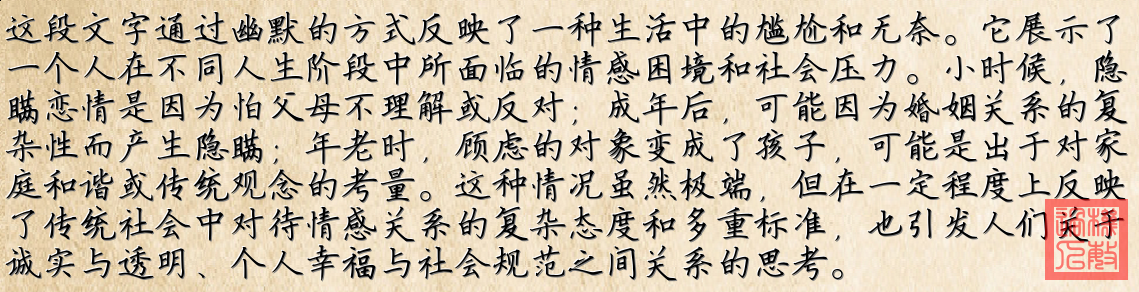 这段文字通过幽默的方式反映了一种生活中的尴尬和无奈。它展示了
一个人在不同人生阶段中所面临的情感困境和社会压力。小时候，隐
瞒恋情是因为怕父母不理解或反对；成年后，可能因为婚姻关系的复
杂性而产生隐瞒；年老时，顾虑的对象变成了孩子，可能是出于对家
庭和谐或传统观念的考量。这种情况虽然极端，但在一定程度上反映
了传统社会中对待情感关系的复杂态度和多重标准，也引发人们关于
诚实与透明、个人幸福与社会规范之间关系的思考。